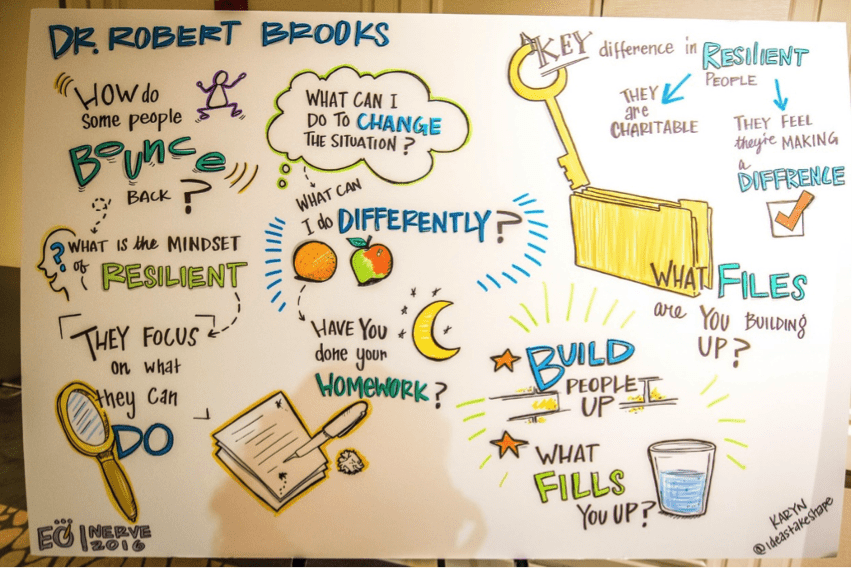 DR. ROBERT BROOKS
HOW do
some people
BOUNCE
BACK?
WHAT IS the MINDSET
of RESILIENT
THEY FOCUS
on what
they can
DO
WHAT CAN I
DO TO CHANGE
THE SITUATION?
WHAT CAN
I do DIFFERENTLY?
HAVE YOU
done your
HOMEWORK?
A KEY difference in RESILIENT
PEOPLE
THEY
are
CHARITABLE
THEY FEEL
they're MAKING
a
DIFFRENCE
WHAT FILES
are YOU BUILDING
UP?
BUILD
PEOPLE
UP
WHAT
FILLS
YOU UP?
EO | NERVE
2016
KARYN
@ideastakeshape